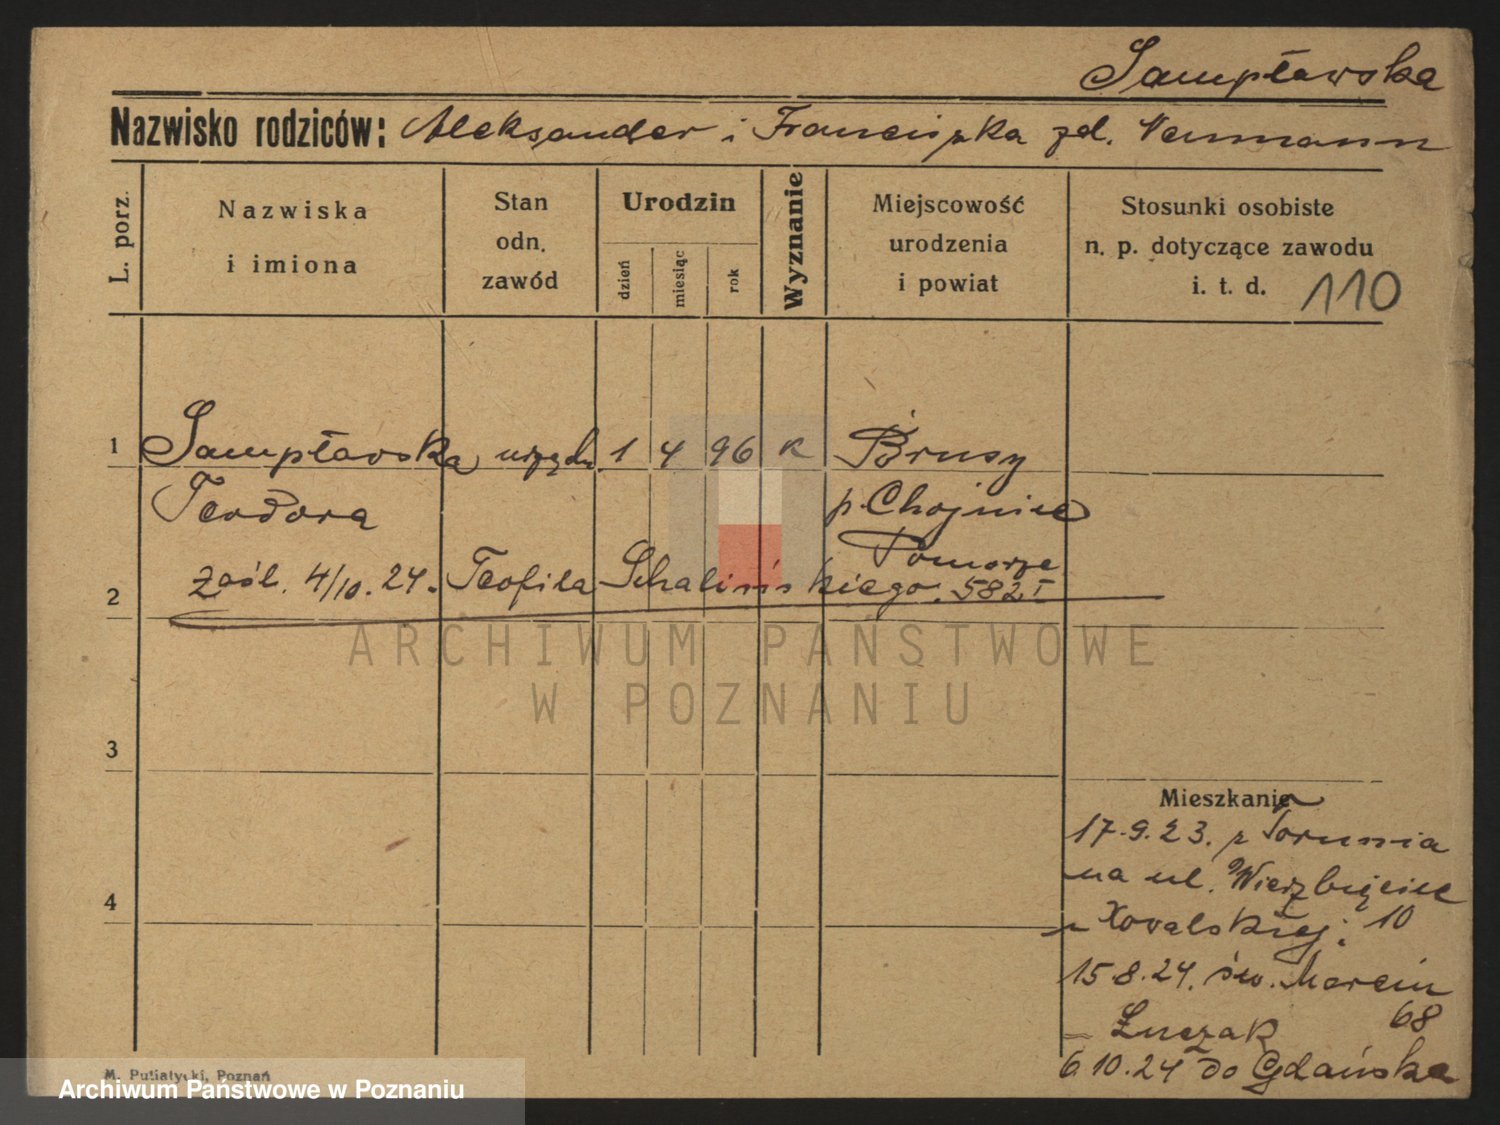 Sampławska
Nazwisko rodziców: Aleksander i Franciszka zd. Neumann
L. porz.
Nazwiska
i imiona
Stan
odn.
zawód
Urodzin
dzień
miesiąc
rok
Wyznanie
Miejscowość
urodzenia
i powiat
Stosunki osobiste
n. p. dotyczące zawodu
i. t. d. 110
1 Sampławska urzędn. 1 4 96 K Brusy
Teodora p. Chojnice
Pomorze
2 zaśl. 4/10. 24. Teofila Schalińskiego. 582 I
ARCHIWUM PAŃSTWOWE
W POZNANIU
3
Mieszkanie
17.9.23. z Torunia
na ul. Wierzbięcice
u Kowalskiej. 10
4
15.8.24. św. Marcin
68
Łuczak
6 10.24 do Gdańska
M. Putiatycki, Poznań
Archiwum Państwowe w Poznaniu